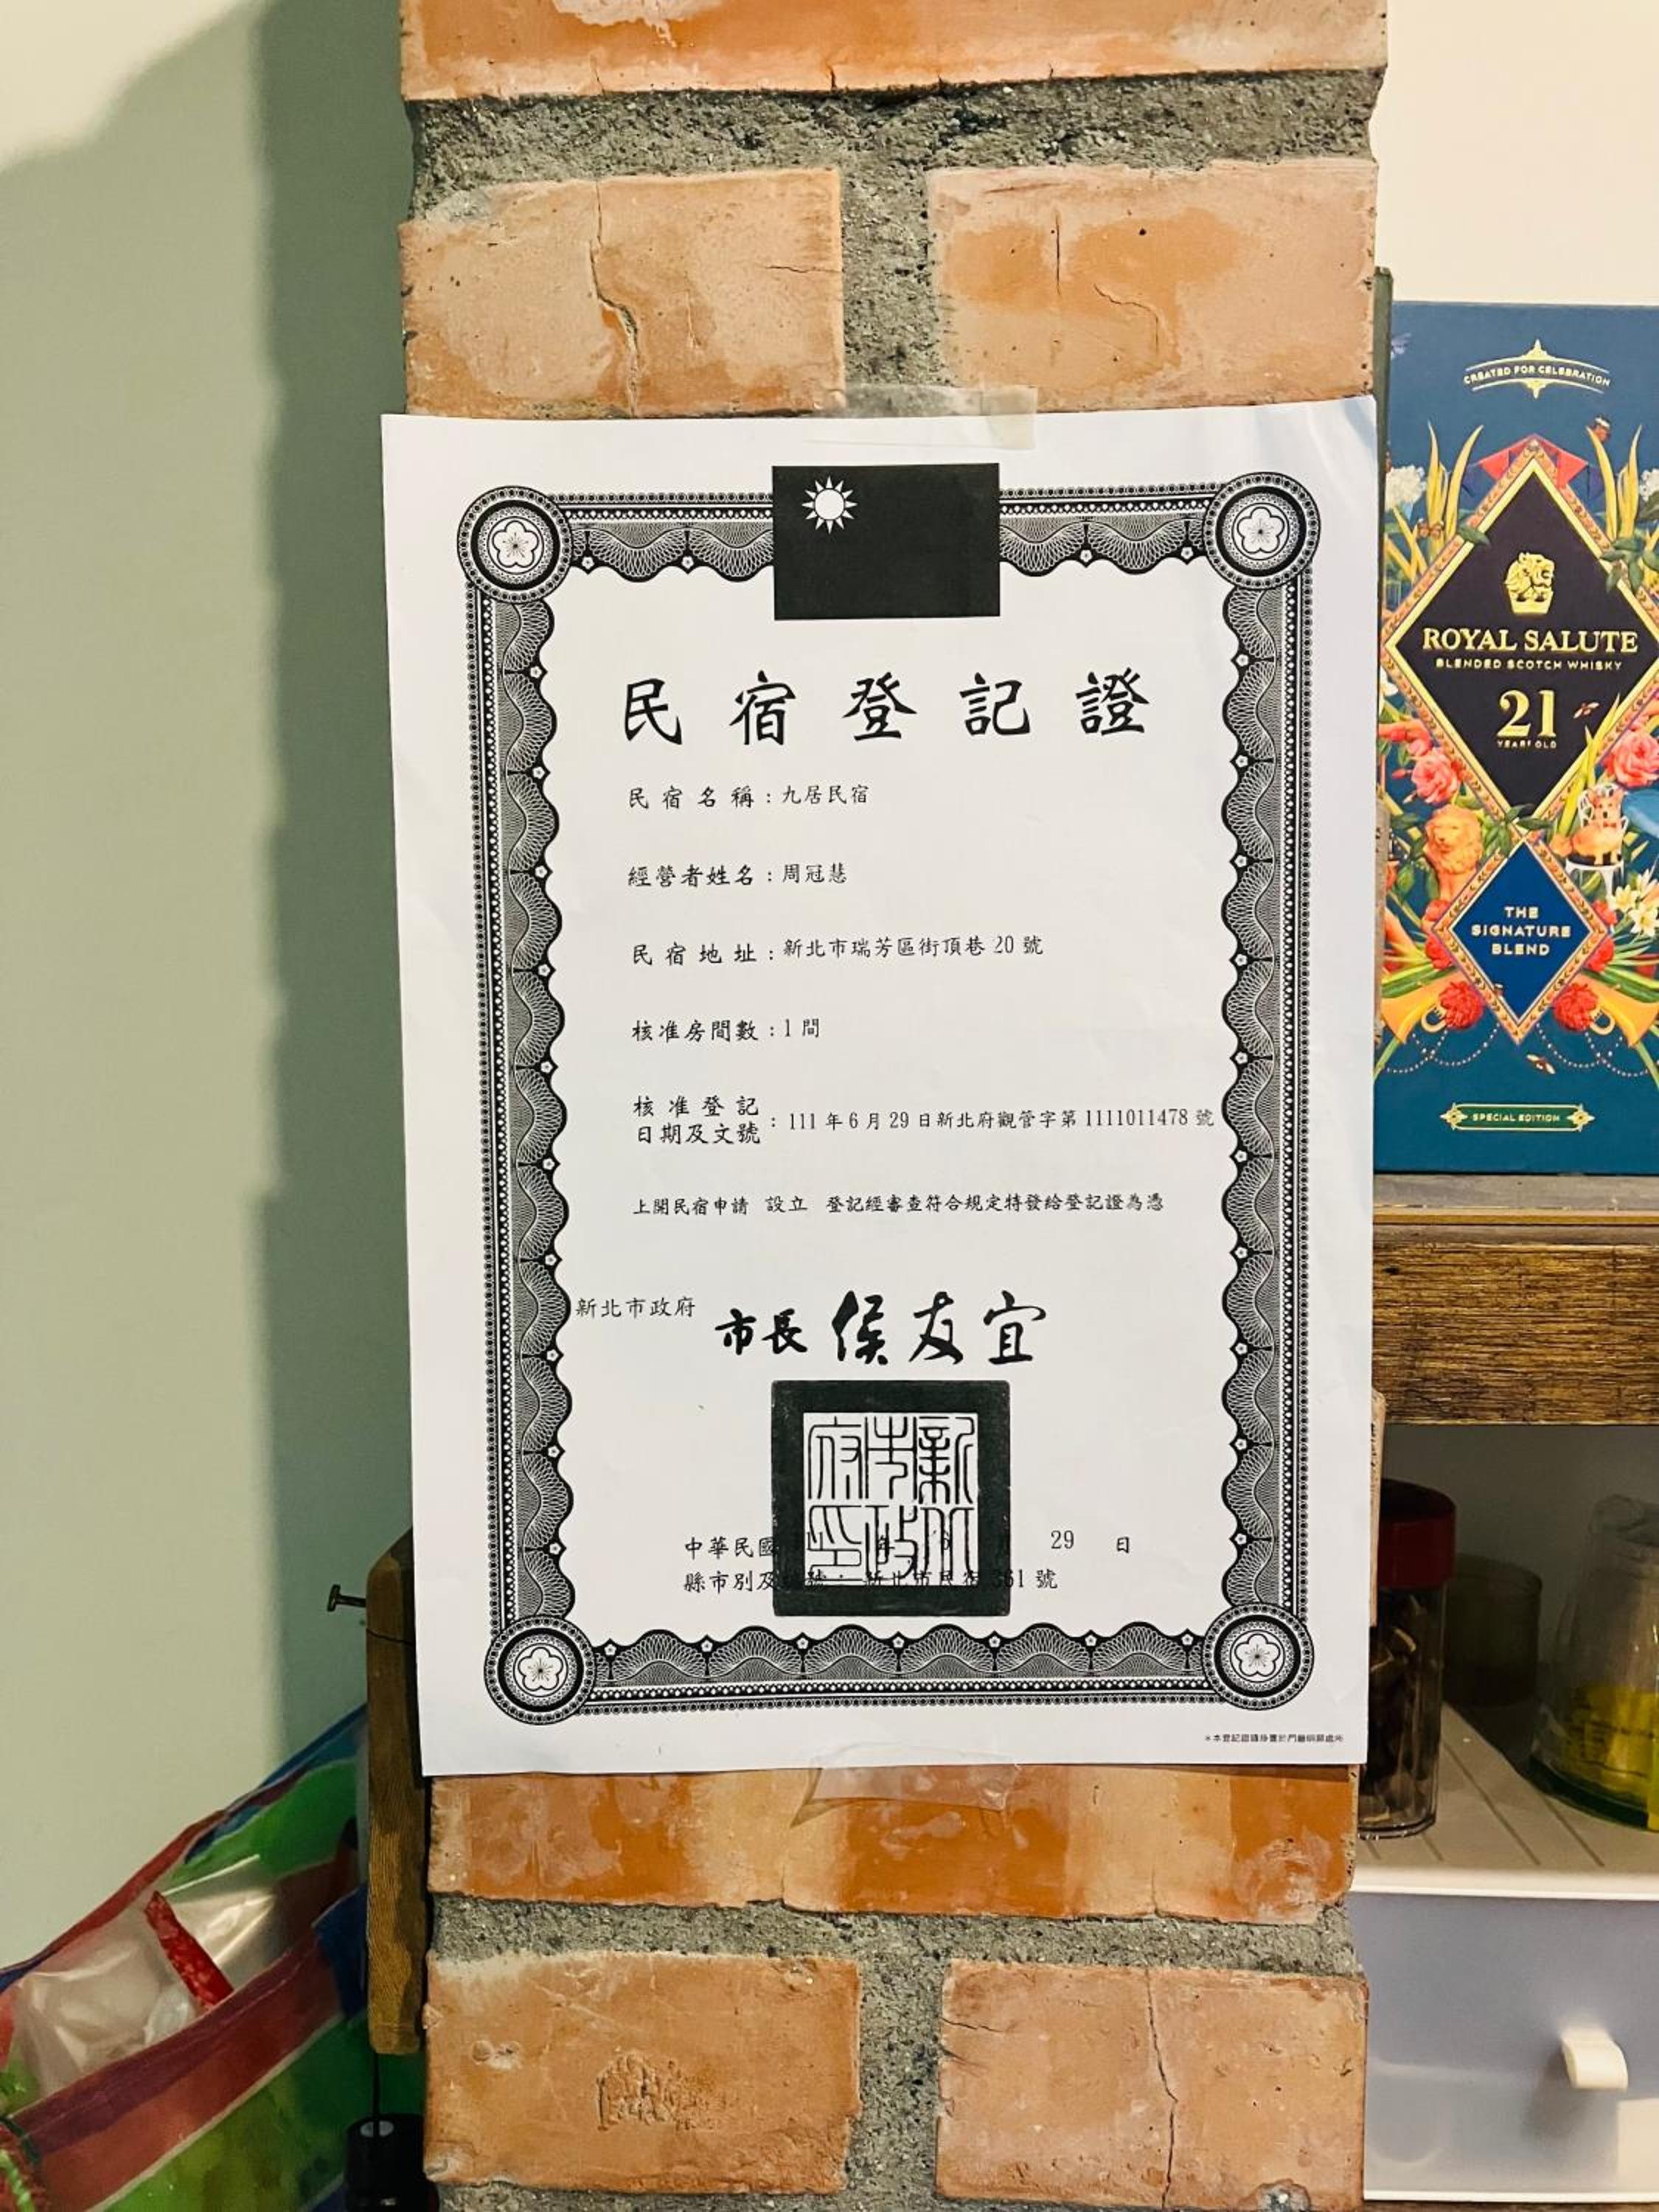 民宿登記證
民宿名稱：九居民宿
經營者姓名：周冠慧
民宿地址：新北市瑞芳區街頂巷 20 號
核准房間數：1 間
核准登記
日期及文號：111 年 6 月 29 日新北府觀管字第 1111011478 號
上開民宿申請 設立 登記經審查符合規定特發給登記證為憑
新北市政府 市長 侯友宜
新北市政府印
中華民國 年 6 29 日
縣市別及編號：新北市民宿 361 號
CREATED FOR CELEBRATION
ROYAL SALUTE
BLENDED SCOTCH WHISKY
21
YEARS OLD
THE
SIGNATURE
BLEND
SPECIAL EDITION